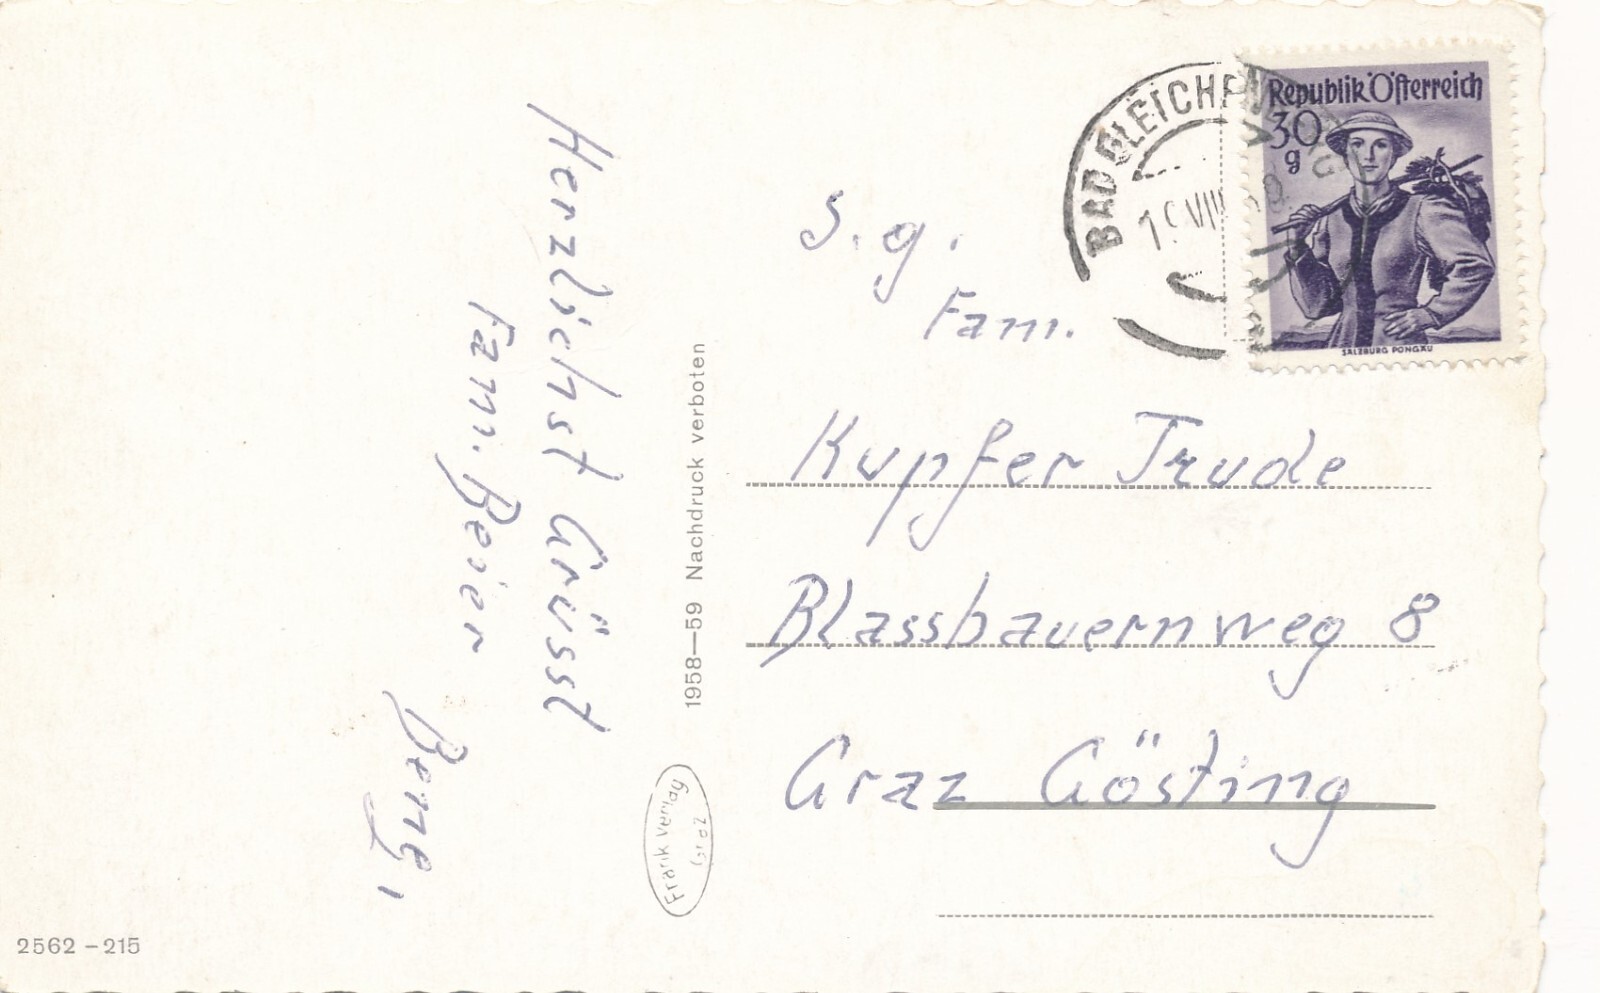 Herzlichst Grüsst
Fam. Beier
1958—59 Nachdruck verboten
Frank Verlag
Graz
2562 - 215
BAD GLEICHEN
19. VIII
Republik Österreich
30
g
SALZBURG PONGAU
S. g.
Fam.
Kupfer Trude
Blassbauernweg 8
Graz Gösting